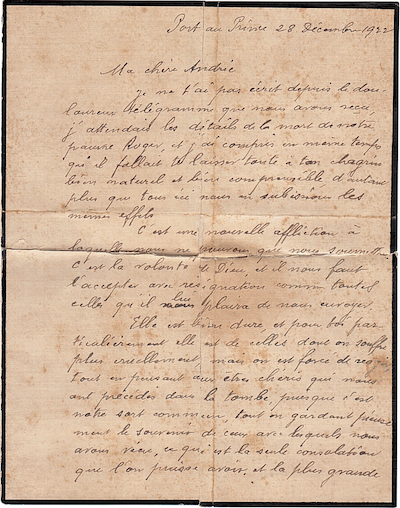 Port au Prince 28 Décembre 1922
Ma chère Andrée
je ne t'ai pas écrit depuis le dou-
laureux télégramme que nous avons reçu,
j'attendais les détails de la mort de notre
pauvre Auger, et j'ai compris en même temps
qu'il fallait te laisser toute à ton chagrin
bien naturel et bien compréhensible d'autant
plus que tous ici nous en subissions les
mêmes effets
C'est une nouvelle affliction à
laquelle nous ne pouvons que nous soumettre
c'est la volonté de Dieu, et il nous faut
l'accepter avec résignation comme toutes
celles qu'il lui plaira de nous envoyer.
Elle est bien dure et pour toi par-
ticulièrement elle est de celles dont on souffre
plus cruellement, mais on est forcé de
tout en pensant aux êtres chéris qui nous
ont précédés dans la tombe, puisque c'est
notre sort commun, tout en gardant
ment le souvenir de ceux avec lesquels nous
avons vécu, ce qui est la seule consolation
que l'on puisse avoir, et la plus grande